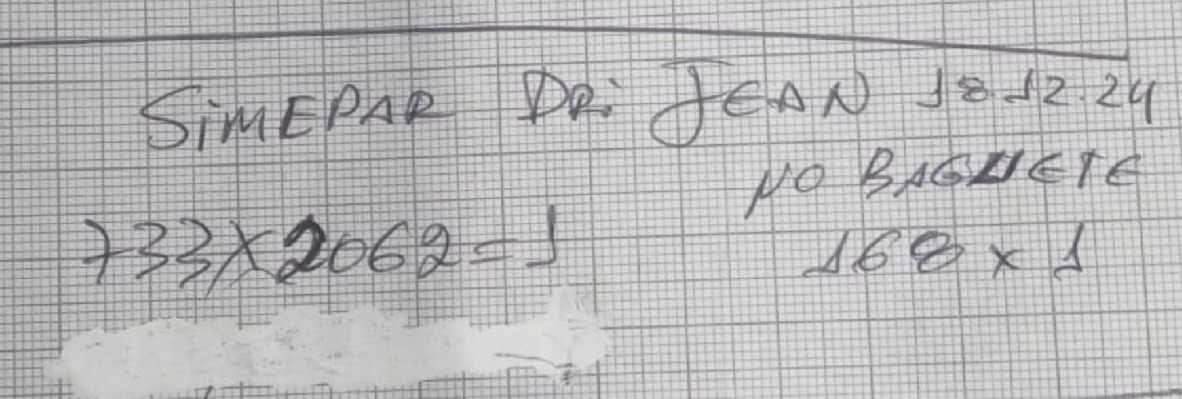 SIMEPAR DR: JEAN 18.12.24
NO BAGUETE
733X2062=1
168 x 1